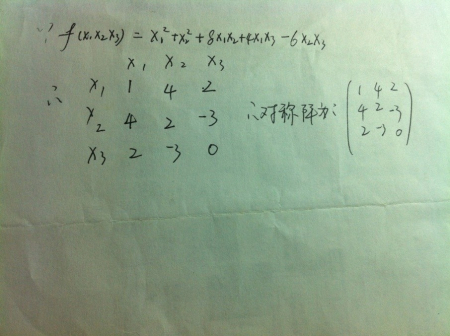 ∵ f(x₁x₂x₃) = x₁²+x₂²+8x₁x₂+4x₁x₃-6x₂x₃
x₁ x₂ x₃
∴ x₁ 1 4 2
x₂ 4 2 -3 ∴对称阵为: (1 4 2
4 2 -3
x₃ 2 -3 0 2 -3 0)